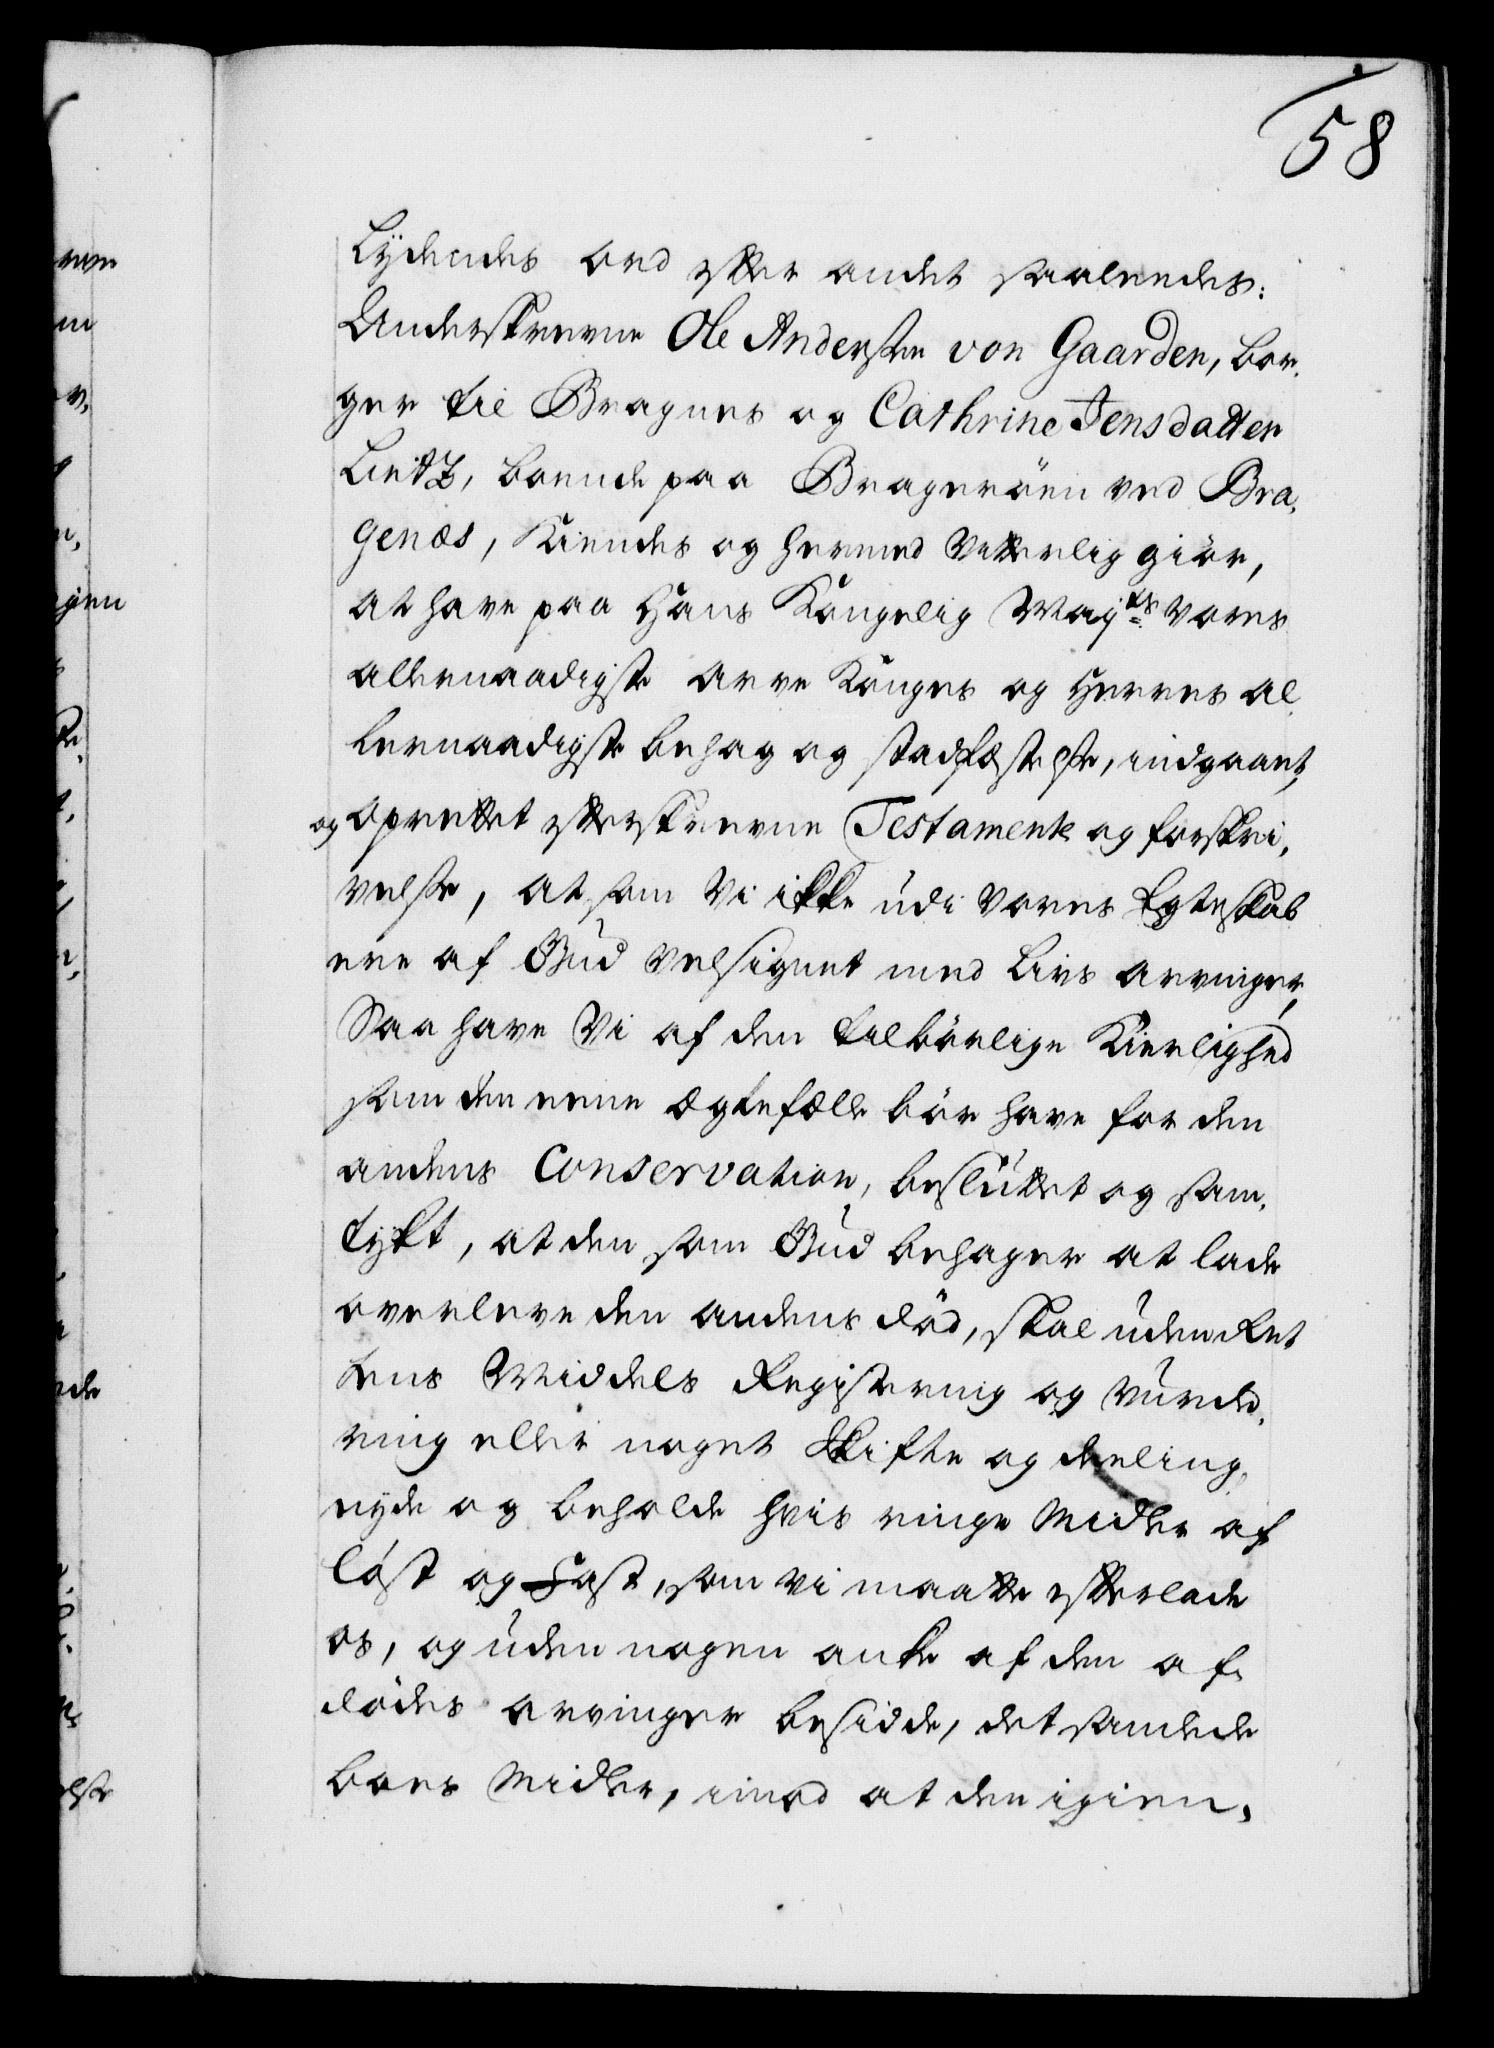 58
Lydendes ord efter andet saaleedes:
Underskrevne Ole Andersen von Gaarden, bor,
ger til Bragnes og Cathrine Jensdatter
Lietz, boende paa Brageröen ved Bra,
genæs, Kiendes og hermed Vitterlig giör,
at have paa Hans Kongelig Maj:ts Vores
allernaadigste arve Konges og Herres al
lernaadigste behag og stadfæstelse, indgaaet,
og oprettet efterskrevne Testamente og forskri,
velse, at som Vi ikke udi Vores Egteskab
ere af Gud Velsignet med Livs arvinger,
Saa have Vi af den tilbörlige Kierlighed
som den eene ægtefælle bör have for den
andens Conservation, besluttet og sam,
tykt, at den som Gud behager at lade
overleve den andens död, skal uden Ret
tens Middels Registering og Vurde,
ring eller noget Skifte og deeling,
nyde og beholde hvis ringe Midler af
löst og Fast, som Vi maatte efterlade
os, og uden nogen anke af den af,
dödes arvinger besidde, det samtlede
boes Midler, imod at den igien,